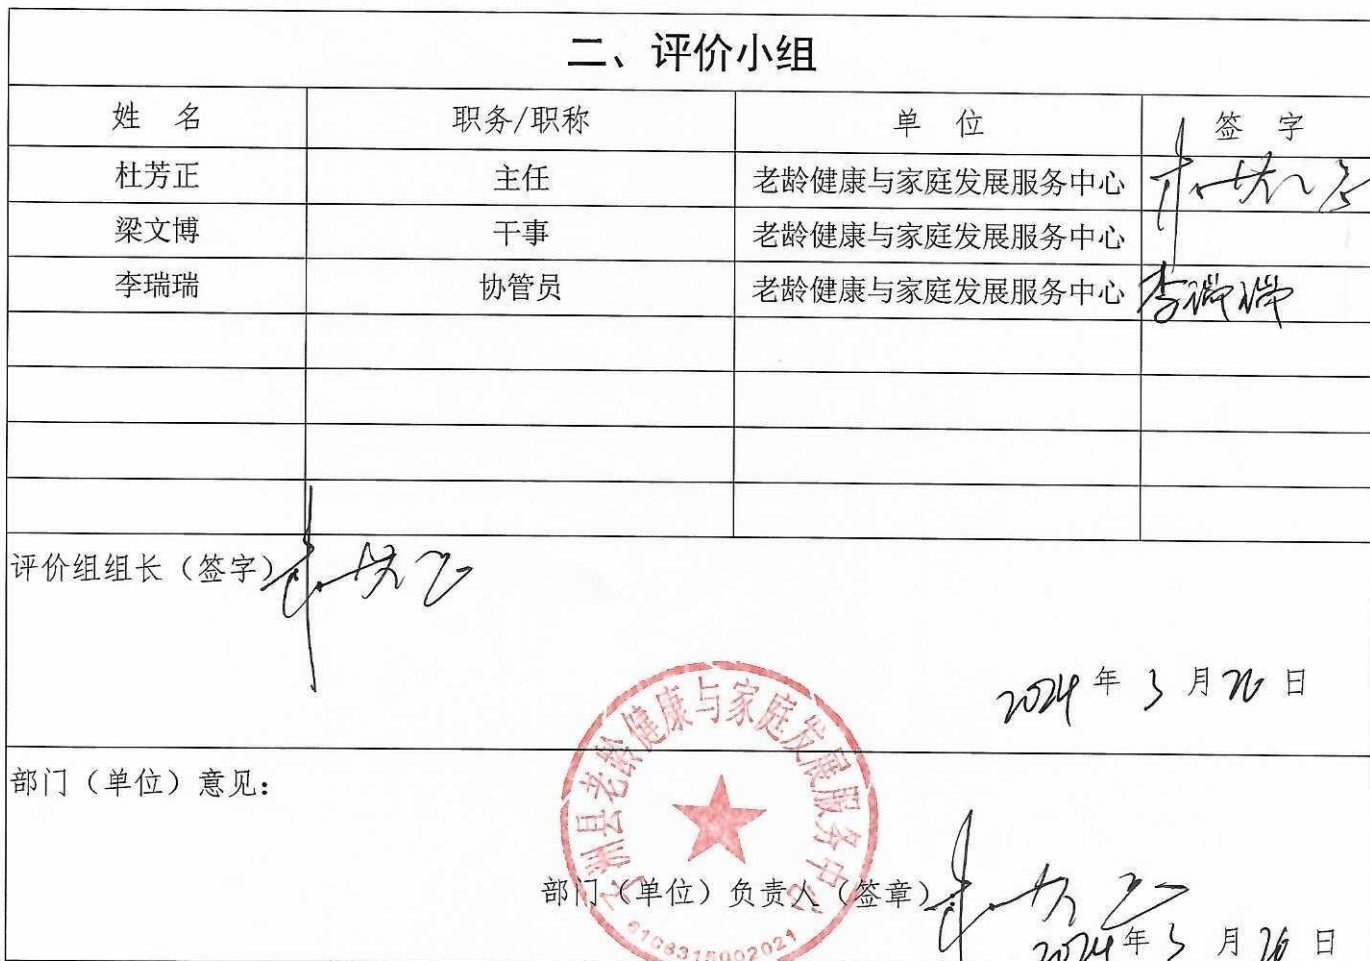 二、评价小组
姓 名 职务/职称 单 位 签 字
杜芳正 主任 老龄健康与家庭发展服务中心 杜芳正
梁文博 干事 老龄健康与家庭发展服务中心
李瑞瑞 协管员 老龄健康与家庭发展服务中心 李瑞瑞
评价组组长（签字） 杜芳正
2024年3月26日
部门（单位）意见：
子洲县老龄健康与家庭发展服务中心
部门（单位）负责人（签章） 杜芳正
6108315002021
2024年3月26日